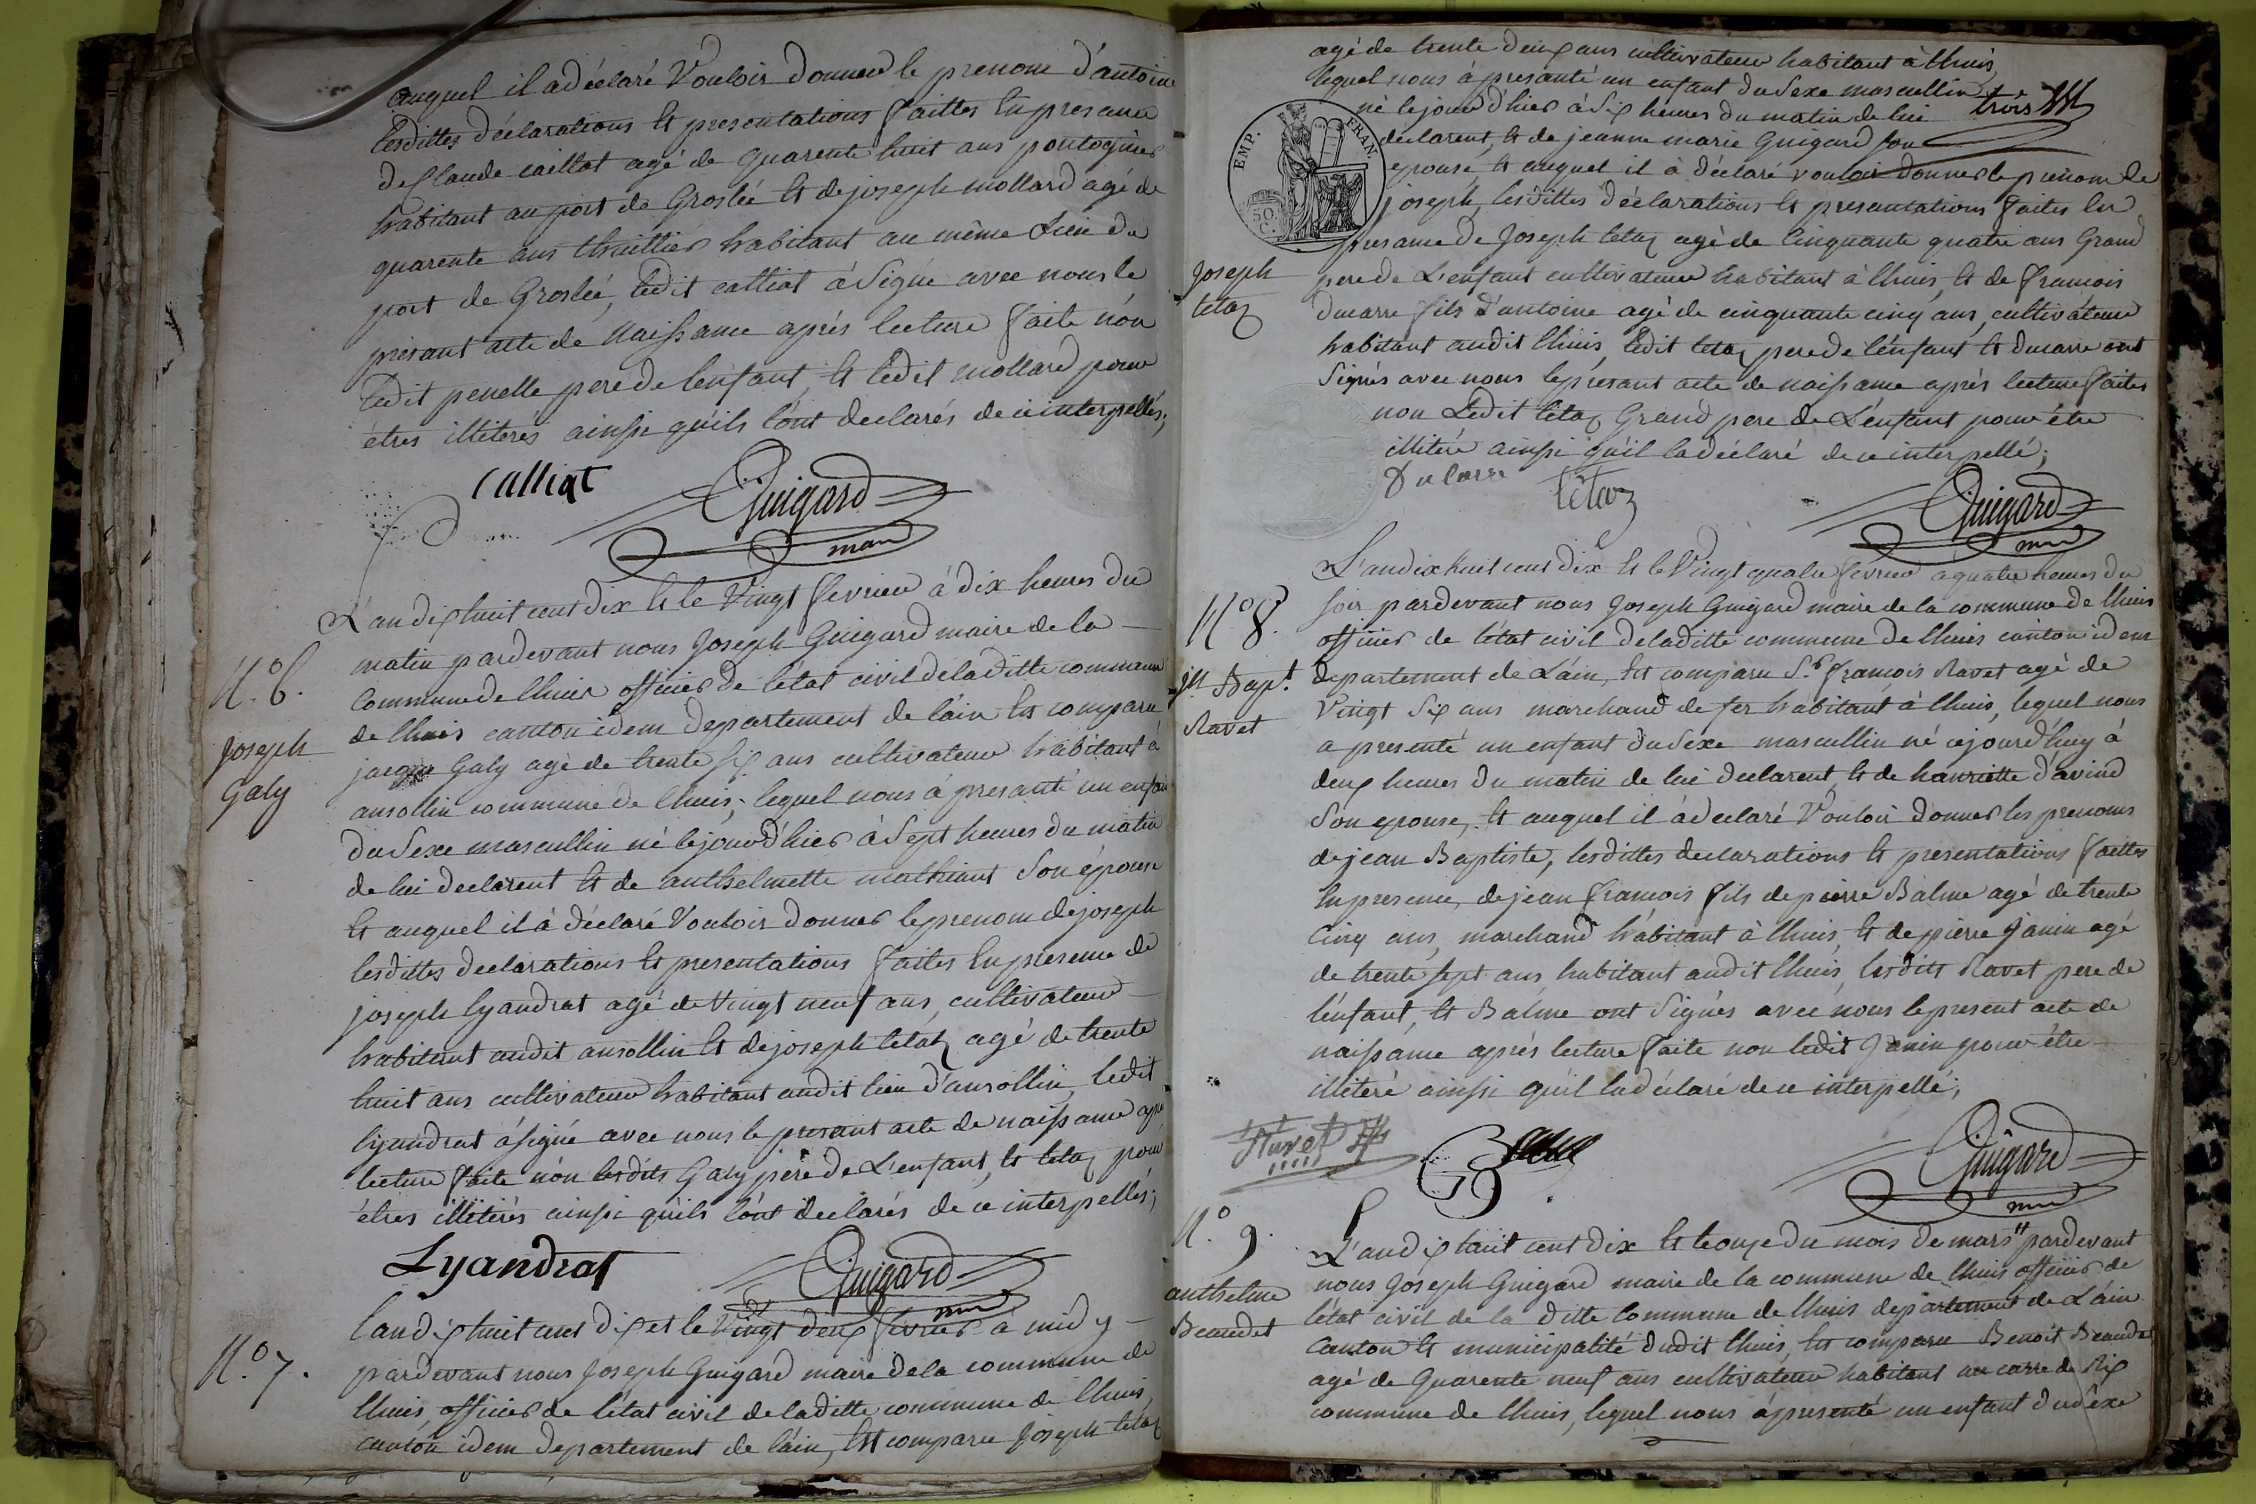 auquel il a déclaré Vouloir donner le prenom d'antoine
lesdittes déclarations Et presentations faittes En presence
de Claude caillat agé de quarente huit ans pontognier
habitant au port de Groslée Et de joseph mollard agé de
quarente ans thuillier habitant au même Lieu du
port de Groslée, ledit calliat à Signé avec nous le
présant acte de Naissance aprés lecture faite non
ledit penelle pere de lenfant, Et ledit mollard pour
étres illiterés ainssi quils lont declarés de ce interpellés;
Calliat
Guigard
maire
L'an dix huit cent dix Et le Vingt fevrier à dix heures du
matin pardevant nous Joseph Guigard maire de la
N.° 6.
Commune de lhuis officier de létat civil de laditte commune
de lhuis canton idem departement de láin Est comparu
Joseph
Galy
jacque Galy agé de trente six ans cultivateur habitant à
ansollin commune de lhuis; lequel nous á presanté un enfant
du Sexe mascullin né le jour d'hier à Sept heures du matin
de lui declarent Et de anthelmette mathiant Son épouse
Et auquel il à déclaré Vouloir donner le prenom de joseph
lesdittes declarations Et presentations faites En presence de
joseph lyandrat agé de Vingt neuf ans, cultivateur
habitant audit ansollin Et de joseph tétaz agé de trente
huit ans cultivateur habitant audit lieu d'ansollin, ledit
lyandrat á signé avec nous le presant acte de naissance apré
lecture faite nón lesdits Galy pére de L'enfant, Et tétaz pour
étres illitérés ainssi quils lónt declarés de ce interpellés;
Lyandrat
Guigard
N.° 7.
lan dix huit cent dix et le Vingt deux fevrier a midy
pardevant nous Joseph Guigard maire de la commune de
lhuis, officier de létat civil de laditte commune de lhuis,
canton idem departement de láin, Est comparu Joseph tétaz
agé de trente deux ans cultivateur habitant à lhuis
lequel nous à presanté un enfant du Sexe mascullin
né le jour d'hier à Six heures du matin de lui
trois
EMP. FRAN.
50. C.
declarent, Et de jeanne marie Guigard son
epouse, Et auquel il à déclaré vouloir donner le prenom de
joseph, lesdittes déclarations Et presantations faites En
presance de Joseph tétaz agé de Cinquante quatre ans Grand
Joseph
tétaz
pere de L'enfant cultivateur habitant à lhuis, Et de francois
ducarre fils d'antoine agé de cinquante cinq ans, cultivateur
habitant audit lhuis, ledit tétaz pere de lénfant Et ducarre ont
Signés avec nous le presant acte de naissance aprés lecture faites
non Ledit tétaz Grand pere de L'enfant pour étre
illitéré ainssi quil la déclaré de ce interpellé;
Ducarre
tétaz
Guigard
L'an dix huit cent dix Et le Vingt quatre fevrier a quatre heures du
N.° 8.
soir pardevant nous Joseph Guigard maire de la commune de lhuis
officier de létat civil de laditte commune de lhuis canton idem
jn Bapt.
Ravet
departement de Láin, Est comparu Sr. francois Ravet agé de
Vingt Six ans marchand de fer habitant à lhuis, lequel nous
a presenté un enfant du Sexe mascullin né cejourd'huy à
deux heures du matin de lui declarent Et de hanriette d'avind
Son epouse, Et auquel il à declaré Vouloir donner les prenoms
de jean Baptiste, lesdittes declarations Et presentations faittes
En presence, de jean francois fils de pierre Balme agé de trente
Cinq ans, marchand habitant à lhuis, Et de pierre Janin agé
de trente sept ans, habitant audit lhuis, lesdits Ravet pere de
lénfant, Et Balme ont Signés avec nous le present acte de
naissance aprés lecture faite non ledit Janin pour étre
illiteré ainssi quil la déclaré de ce interpellé;
Ravet
Guigard
N.° 9.
L'an dix huit cent dix Et le onze du mois de mars pardevant
anthelme
Beaudet
nous Joseph Guigard maire de la commune de lhuis officier de
létat civil de la ditte Commune de lhuis departement de Láin
Canton Et municipalité dudit lhuis, Est comparu Benoit Beaudet
agé de Quarente neuf ans cultivateur habitant au carre de Rix
commune de lhuis, lequel nous á presenté un enfant du séxe